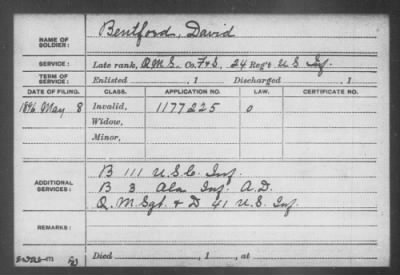 NAME OF SOLDIER: Bentford, David
SERVICE: Late rank, Q.M.S. Co. F&S, 24 Reg't U.S. Inf.
TERM OF SERVICE: Enlisted , 1 Discharged , 1
DATE OF FILING. CLASS. APPLICATION NO. LAW. CERTIFICATE NO.
1896 May 8 Invalid, 1177225 0
Widow,
Minor,
ADDITIONAL SERVICES: B 111 U.S.C. Inf.
B 3 Ala Inf. A.D.
Q.M. Sgt. & D 41 U.S. Inf.
REMARKS:
Died , 1 , at